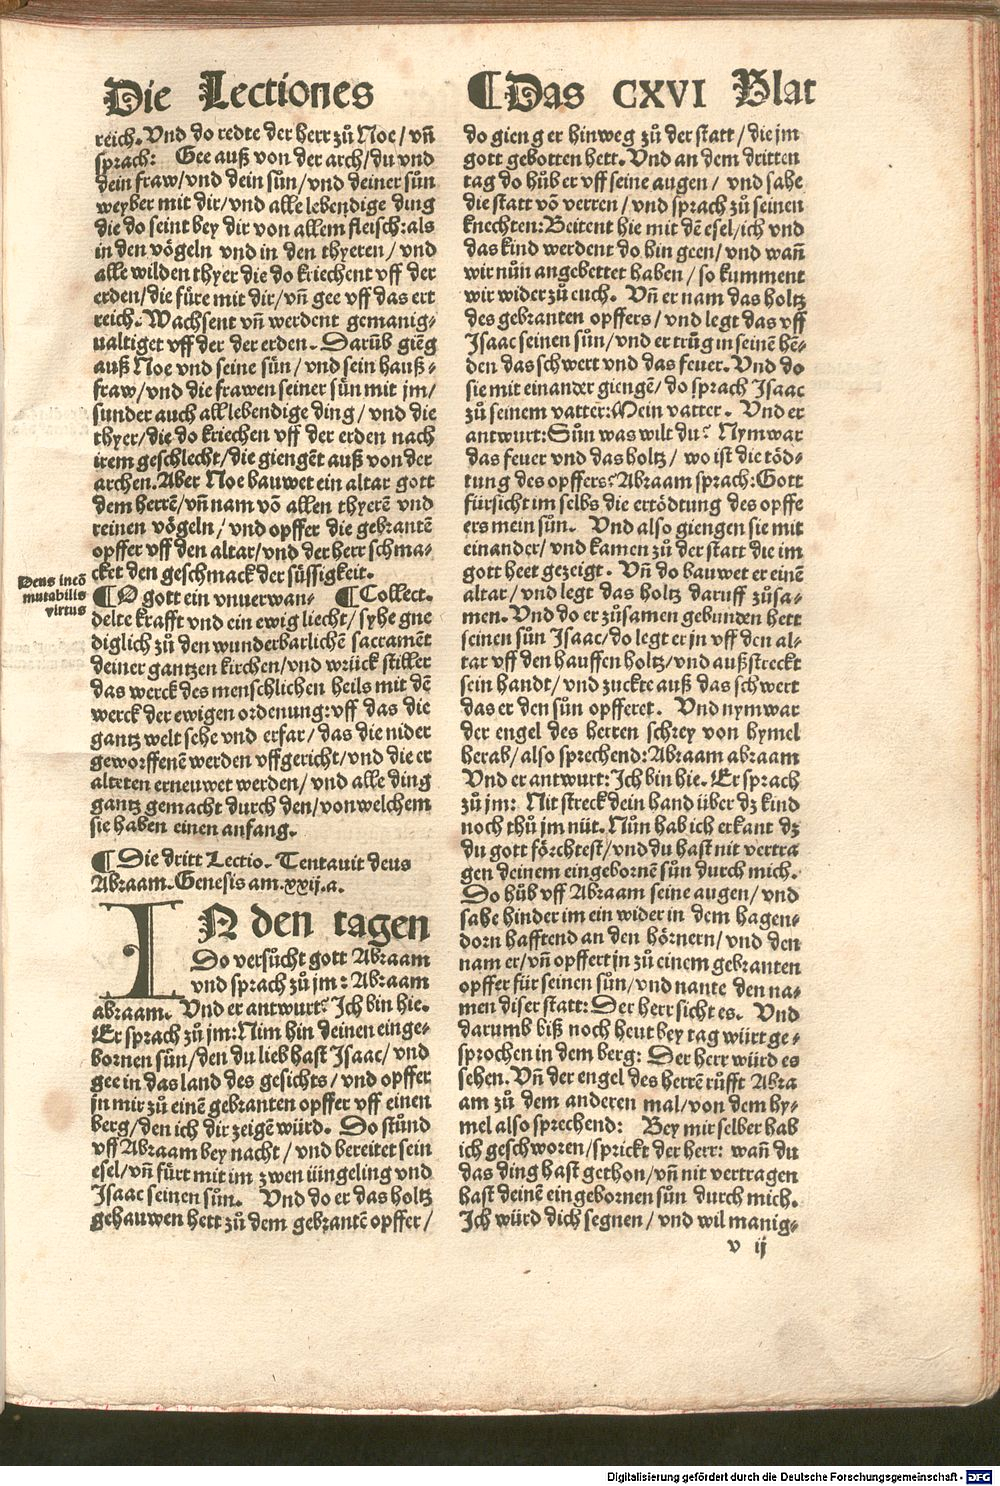 Die Lectiones
¶Das CXVI Blat
reich. Vnd do redte der herr zů Noe/ vñ
sprach: Gee auß von der arch/du vnd
dein fraw/vnd dein sün/vnd deiner sün
weyber mit dir/vnd alle lebendige ding
die do seint bey dir von allem fleisch:als
in den vögeln vnd in den thyeren/ vnd
alle wilden thyer die do kriechent vff der
erden/die füre mit dir/vñ gee vff das ert
reich. Wachsent vñ werdent gemanig-
ualtiget vff der der erden. Darüb giẽg
auß Noe vnd seine sün/ vnd sein hauß-
fraw/vnd die frawen seiner sün mit jm/
sunder auch all lebendige ding/ vnd die
thyer/die do kriechen vff der erden nach
irem geschlecht/die giengẽt auß von der
archen. Aber Noe bauwet ein altar gott
dem herrẽ/vñ nam võ allen thyerẽ vnd
reinen vögeln/ vnd opffer die gebrantẽ
opffer vff den altar/vnd der herr schma-
cket den geschmack der süssigkeit.
Deus incõ
mutabilis
virtus
¶O gott ein vnuerwan- ¶Collect.
delte krafft vnd ein ewig liecht/ syhe gne
diglich zů den wunderbarlichẽ sacramẽt
deiner gantzen kirchen/vnd wrück stiller
das werck des menschlichen heils mit dẽ
werck der ewigen ordenung:vff das die
gantz welt sehe vnd erfar/ das die nider
geworffenẽ werden vffgericht/vnd die er
alteten erneuwet werden/ vnd alle ding
gantz gemacht durch den/von welchem
sie haben einen anfang.
¶Die dritt Lectio. Tentauit deus
Abraam. Genesis am .xxij.a.
IN den tagen
Do versůcht gott Abraam
vnd sprach zů jm: Abraam
abraam. Vnd er antwurt? Ich bin hie.
Er sprach zů jm: Nim hin deinen einge-
bornen sůn/den du lieb hast Isaac/ vnd
gee in das land des gesichts/ vnd opffer
jn mir zů einẽ gebranten opffer vff einen
berg/den ich dir zeigẽ würd. Do stůnd
vff Abraam bey nacht/ vnd bereitet sein
esel/vñ fürt mit im zwen iüngeling vnd
Isaac seinen sůn. Vnd do er das holtz
gehauwen hett zů dem gebrantẽ opffer/
do gieng er hinweg zů der statt/ die jm
gott gebotten hett. Vnd an dem dritten
tag do hůb er vff seine augen/ vnd sahe
die statt võ verren/ vnd sprach zů seinen
knechten:Beitent hie mit dẽ esel/ich vnd
das kind werdent do hin geen/ vnd wañ
wir nůn angebettet haben/ so kumment
wir wider zů euch. Vñ er nam das holtz
des gebranten opffers/ vnd legt das vff
Isaac seinen sůn/ vnd er trůg in seinẽ hẽ-
den das schwert vnd das feuer. Vnd do
sie mit einander giengẽ/ do sprach Isaac
zů seinem vatter:Mein vatter. Vnd er
antwurt:Sůn was wilt du? Nym war
das feuer vnd das holtz/ wo ist die töd-
tung des opffers? Abraam sprach:Gott
fürsicht im selbs die ertödtung des opffe
ers mein sůn. Vnd also giengen sie mit
einander/ vnd kamen zů der statt die im
gott heet gezeigt. Vñ do bauwet er einẽ
altar/ vnd legt das holtz daruff zůsa-
men. Vnd do er zůsamen gebunden hett
seinen sůn Isaac/do legt er jn vff den al-
tar vff den hauffen holtz/vnd außstreckt
sein handt/ vnd zuckte auß das schwert
das er den sůn opfferet. Vnd nym war
der engel des herren schrey von hymel
herab/ also sprechend: Abraam abraam
Vnd er antwurt: Ich bin hie. Er sprach
zů jm: Nit streck dein hand über dz kind
noch thů jm nüt. Nůn hab ich erkant dz
du gott förchtest/ vnd du hast nit vertra
gen deinem eingebornẽ sůn durch mich.
Do hůb vff Abraam seine augen/ vnd
sahe hinder im ein wider in dem hagen-
dorn hafftend an den hörnern/ vnd den
nam er/ vñ opffert jn zů einem gebranten
opffer für seinen sůn/ vnd nante den na-
men diser statt: Der herr sicht es. Vnd
darumb biß noch heut bey tag würt ge-
sprochen in dem berg: Der herr würd es
sehen. Vñ der engel des herrẽ růfft Abra
am zů dem anderen mal/von dem hy-
mel also sprechend: Bey mir selber hab
ich geschworen/sprickt der herr: wañ du
das ding hast gethon/vñ nit vertragen
hast deinẽ eingebornen sůn durch mich.
Ich würd dich segnen/ vnd wil manig-
v ij
Digitalisierung gefördert durch die Deutsche Forschungsgemeinschaft - DFG